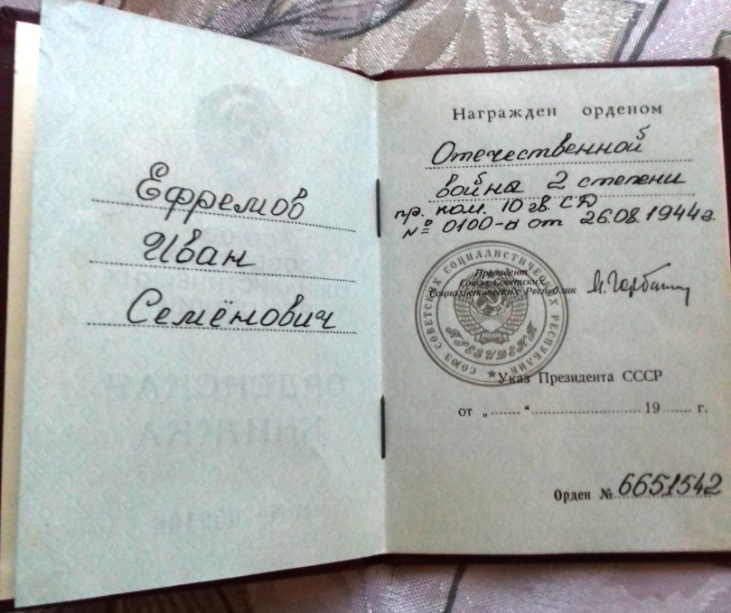 Ефремов
Иван
Семёнович
Награжден орденом
Отечественной
войны 2 степени
пр. ком. 10 гв. СД
№ 0100-н от 26.08.1944г.
Президент
Союза Советских
Социалистических Республик
М. Горбачев
СОЮЗ СОВЕТСКИХ СОЦИАЛИСТИЧЕСКИХ РЕСПУБЛИК
ПРЕЗИДЕНТ
Указ Президента СССР
от „ “ 19 г.
Орден № 6651542